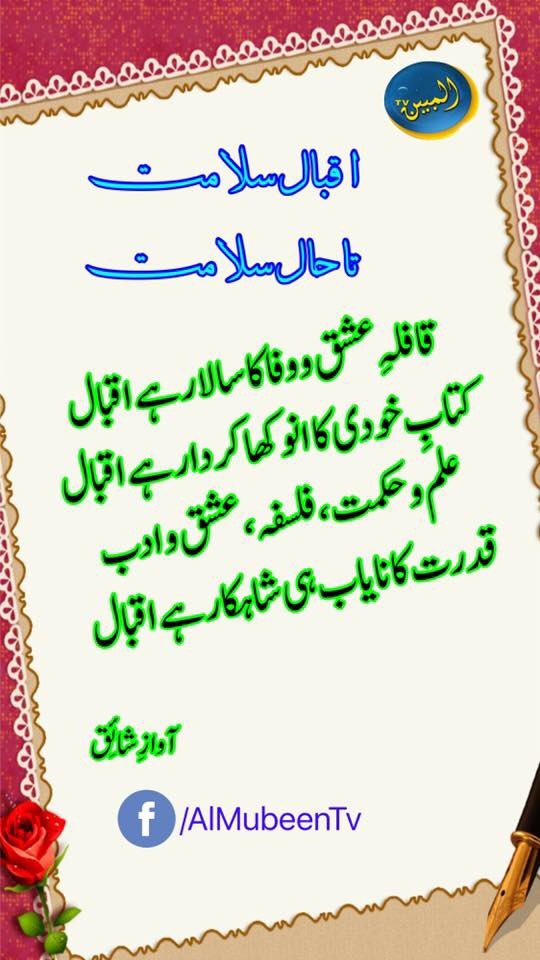 المبین TV
اقبال سلامت
تا حال سلامت
قافلہِ عشق و وفا کا سالار ہے اقبال
کتابِ خودی کا انوکھا کردار ہے اقبال
علم و حکمت، فلسفہ، عشق و ادب
قدرت کا نایاب ہی شاہکار ہے اقبال
آوازِ شائق
f /AlMubeenTv